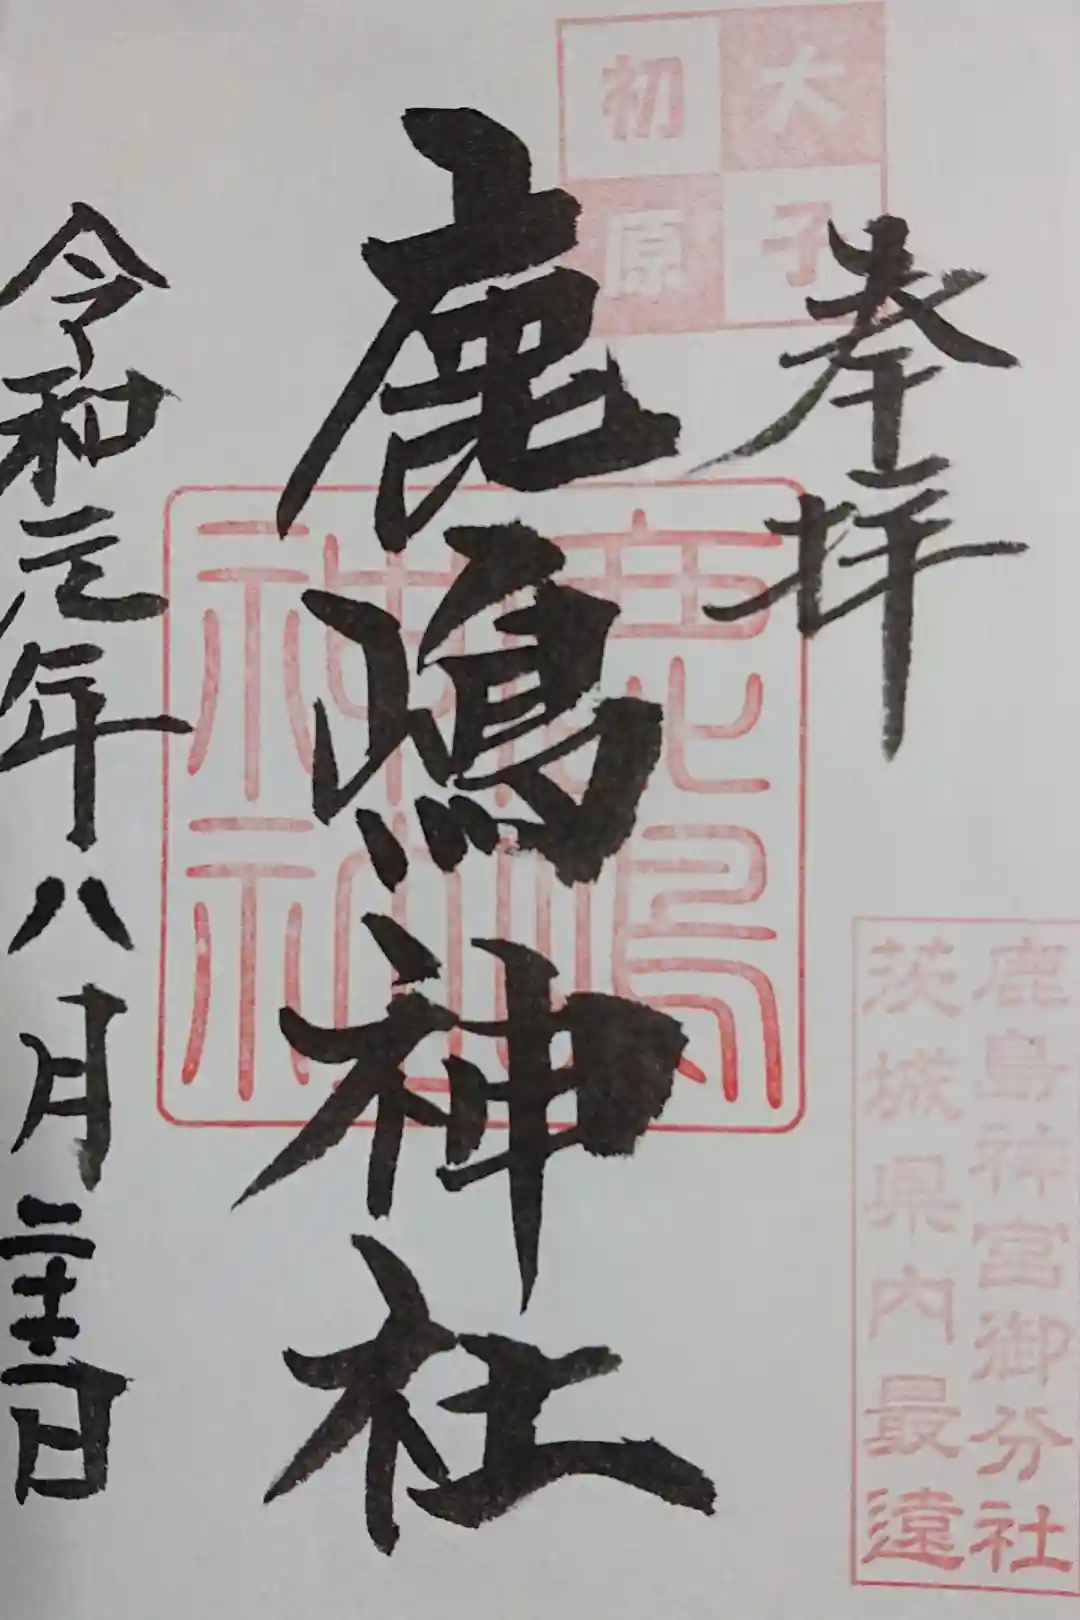 大子
初原
奉拝
鹿嶋神社
鹿嶋
神社
令和元年八月二十二日
鹿島神宮御分社
茨城県内最遠